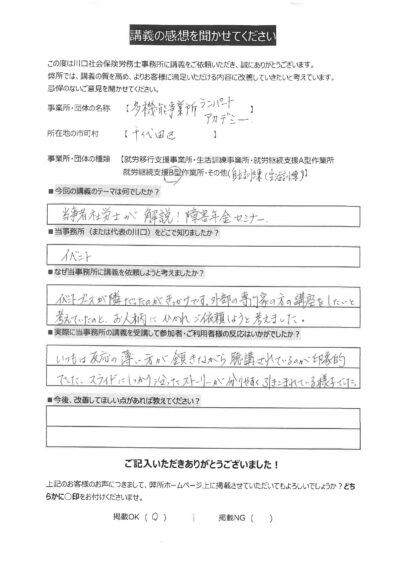 講義の感想を聞かせてください
この度は川口社会保険労務士事務所に講義をご依頼いただき、誠にありがとうございます。
弊所では、講義の質を高め、よりお客様に満足いただける内容に改善していきたいと考えています。
忌憚のないご意見を聞かせください。
事業所・団体の名称 【 多機能事業所 ランパート 】
アカデミー
所在地の市町村 【 千代田区 】
事業所・団体の種類 【就労移行支援事業所・生活訓練事業所・就労継続支援A型作業所
就労継続支援B型作業所・その他(自立訓練(生活訓練)】
■今回の講義のテーマは何でしたか?
当事者社労士が解説!障害年金セミナー
■当事務所(または代表の川口)をどこで知りましたか?
イベント
■なぜ当事務所に講義を依頼しようと考えましたか?
イベントブースが隣だったのがきっかけです。外部の専門家の方の講座をしたいと
考えていたのと、お人柄にひかれご依頼しようと考えました。
■実際に当事務所の講義を受講して参加者・ご利用者様の反応はいかがでしたか?
いつもは反応の薄い方が頷きながら聴講されているのが印象的
でした。スライドにしっかり沿ったストーリーが分りやすく引きこまれている様子でした。
■今後、改善してほしい点があれば教えてください?
ご記入いただきありがとうございました!
上記のお客様のお声につきまして、弊所ホームページ上に掲載させていただいてもよろしいでしょうか?どち
らかに〇印をお付けくださいませ。
掲載OK ( 〇 ) | 掲載NG ( )